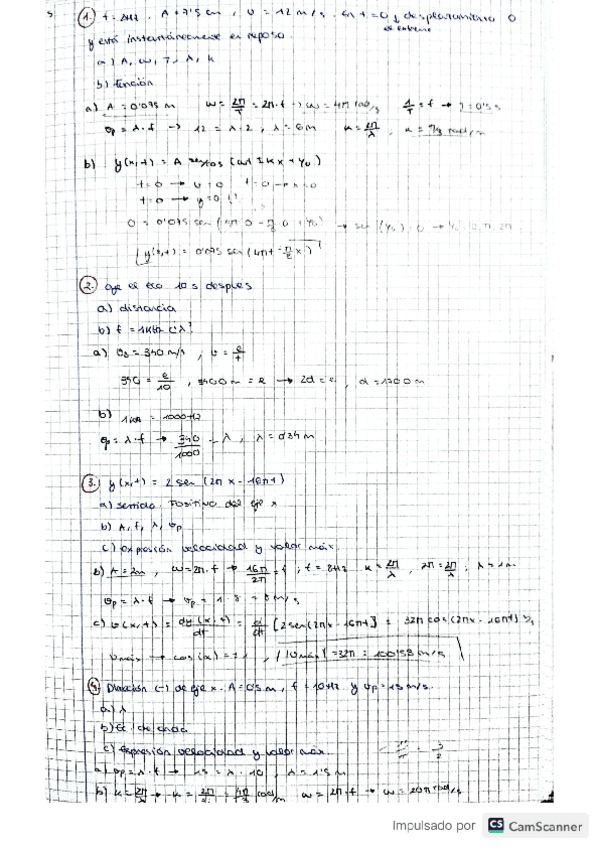 1. f = 2Hz . A = 7'5 cm , v = 12 m/s . en t = 0 y desplazamiento 0
el extremo
y está instantáneamente en reposo
a) A, ω, T, λ, k
b) función
a) A = 0'075 m ω = 2π/T = 2π·f → ω = 4π rad/s 1/T = f → T = 0'5 s
vp = λ·f → 12 = λ·2 , λ = 6m k = 2π/λ , k = π/3 rad/m
b) y(x,t) = A sen/cos (ωt ± kx + φ0)
t = 0 → v = 0 t = 0 → x = 0
t = 0 → y = 0
0 = 0'075 sen (4π 0 - π/3 0 + φ0) → sen (φ0) = 0 → φ0 = 0, π, 2π
y(x,t) = 0'075 sen (4πt - π/3 x)
2. oye el eco 10 s después
a) distancia
b) f = 1KHz ¿λ?
a) vs = 340 m/s , v = e/t
340 = e/10 , 3400 m = e → 2d = e , d = 1700 m
b) 1KHz = 1000 Hz
vp = λ·f → 340/1000 = λ , λ = 0'34 m
3. y(x,t) = 2 sen (2πx - 16πt)
a) sentido. Positivo del eje x
b) A, f, λ, vp
c) expresión velocidad y valor máx.
b) A = 2m , ω = 2π·f → 16π/2π = f ; f = 8Hz k = 2π/λ , 2π = 2π/λ ; λ = 1m
vp = λ·f → vp = 1·8 = 8 m/s
c) v(x,t) = dy(x,t)/dt = d/dt [2 sen (2πx - 16πt)] = 32π cos (2πx - 16πt) m/s
Vmáx → cos(x) = ±1 , |Vmáx| = 32π = 100'53 m/s
4. Dirección (-) de eje x. A = 0'5 m , f = 10Hz y vp = 15 m/s.
a) λ
b) Ec. de onda
c) Expresión velocidad y valor máx.
a) vp = λ·f → 15 = λ·10 , λ = 1'5 m
b) k = 2π/λ → k = = 4π/3 rad/m ω = 2π·f → ω = 20π rad/s
Impulsado por CS CamScanner